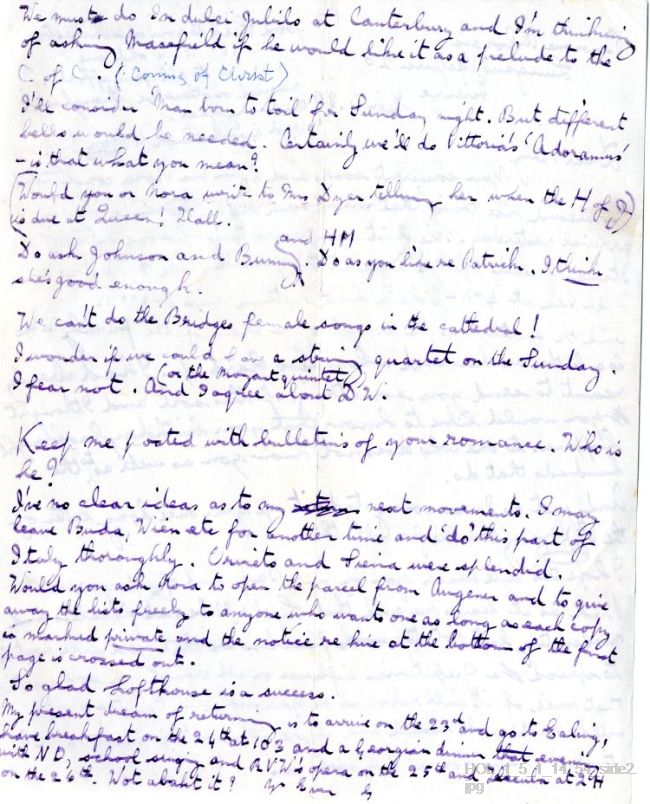 We must do In dulci Jubilo at Canterbury and I'm thinking
of asking Masefield if he would like it as a prelude to the
C. of C.. (: Coming of Christ)
I'll consider 'Man born to toil' for Sunday night. But different
bells would be needed. Certainly we'll do Vittoria's 'Adoramus'
- is that what you mean?
(Would you or Nora write to Mrs Dyer telling her when the H of J)
is due at Queen's Hall.
and HM
Do ask Johnson and Bunny. Do as you like re Patrick. I think
she's good enough.
We can't do the Bridges female songs in the cathedral!
I wonder if we could have a string quartet on the Sunday.
(or the Mozart quintet)
I fear not. And I agree about DW.
Keep me posted with bulletins of your romance. Who is
he?
I've no clear ideas as to my next movements. I may
leave Buda, Wien etc for another time and 'do' this part of
Italy thoroughly. Orvieto and Siena were splendid.
Would you ask Nora to open the parcel from Augener and to give
away the lists freely to anyone who wants one as long as each copy
is marked private and the notice re hire at the bottom of the first
page is crossed out.
So glad Lofthouse is a success.
My present dream of returning is to arrive on the 23rd and go to Ealing,
have breakfast on the 24th at 103 and a Georgian dinner that evening
with ND, school sing and RVW's opera on the 25th and at QH
on the 26th. Wot abaht it? Yr Ever G
side2
jpg